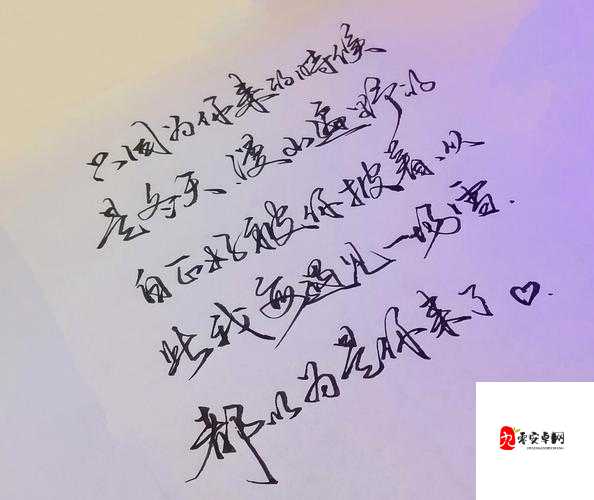 只因为你来的时候
是冬天、漫山遍野的
白正好被你披着、从
此我每遇见一场雪.
都以为是你来了♡.
零安卓网